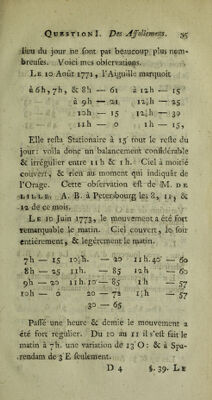 QUESTION I. Des Affolemens. 35
lieu du jour ne sont pas beaucoup plus nom-
breuses. Voici mes observations.
LE 10 Août 1771, l'Aiguille marquoit
à 6h, 7h, & 8h — 61 à 12h — 15
à 9h — 21 12¼h — 25
10h — 15 12½h — 30
11h — 0 1h — 15,
Elle resta Stationaire à 15 tout le reste du
jour: voila donc un balancement considérable
& irrégulier entre 11h & 1h. Ciel à moitié
couvert, & rien au moment qui indiquât de
l'Orage. Cette observation est de M. DE
LILLE, A. B. à Petersbourg les 8, 11, &
12 de ce mois.
LE 10 Juin 1773, le mouvement a été fort
remarquable le matin. Ciel couvert, le soir
entiérement, & legérement le matin.
7h — 15 10½h. — 20 11h.40′ — 60
8h — 25 11h. — 85 12h — 60
9h — 20 11h.10′ — 85 1h — 57
10h — 0 20 — 72 1½h — 57
30 — 65
Passé une heure & demie le mouvement a
été fort regulier. Du 10 au 11 il s'est fait le
matin à 7h. une variation de 13′ O: & à Spa-
rendam de 3′ E seulement.
D 4 §. 39. LE